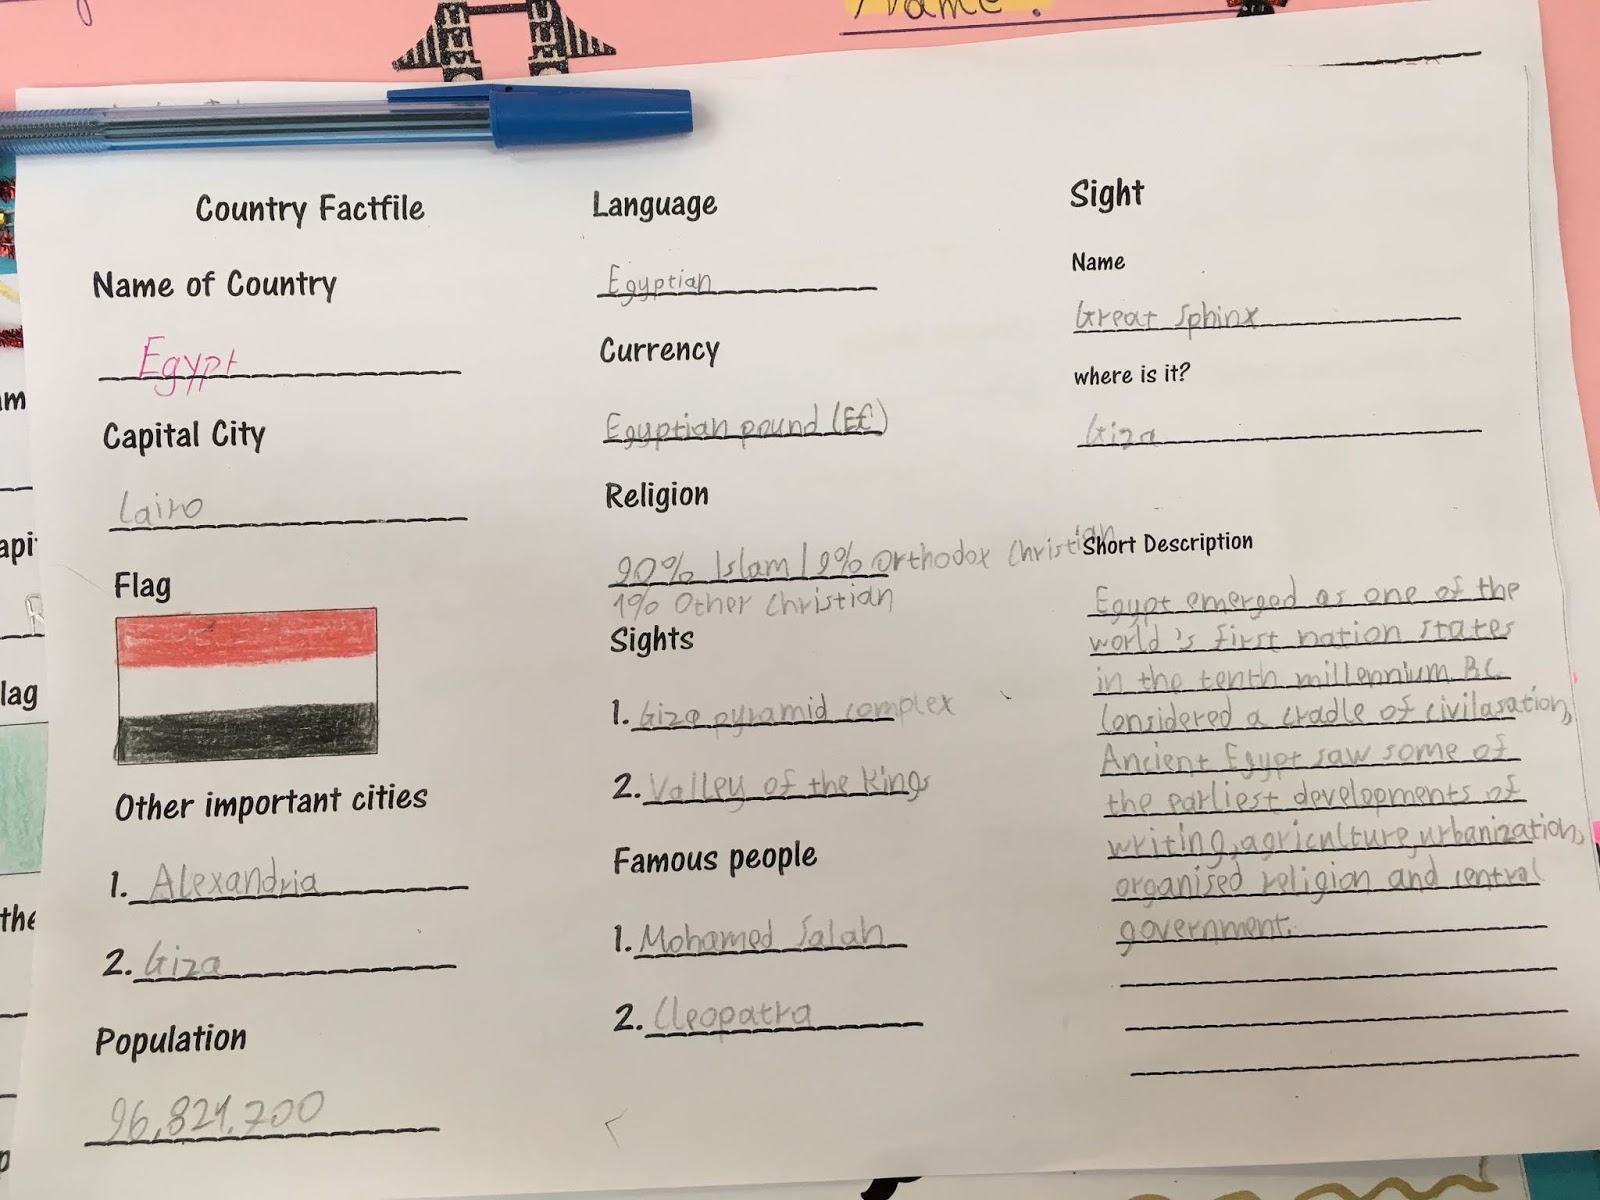 Name:
Country Factfile
Name of Country
Egypt
Capital City
Cairo
Flag
Other important cities
1. Alexandria
2. Giza
Population
96,821,700
Language
Egyptian
Currency
Egyptian pound (E£)
Religion
90% Islam | 9% Orthodox Christian
1% Other Christian
Sights
1. Giza pyramid complex
2. Valley of the Kings
Famous people
1. Mohamed Salah
2. Cleopatra
Sight
Name
Great Sphinx
where is it?
Giza
Short Description
Egypt emerged as one of the
world's first nation states
in the tenth millennium BC.
Considered a cradle of civilasation,
Ancient Egypt saw some of
the earliest developments of
writing, agriculture, urbanization,
organised religion and central
government.